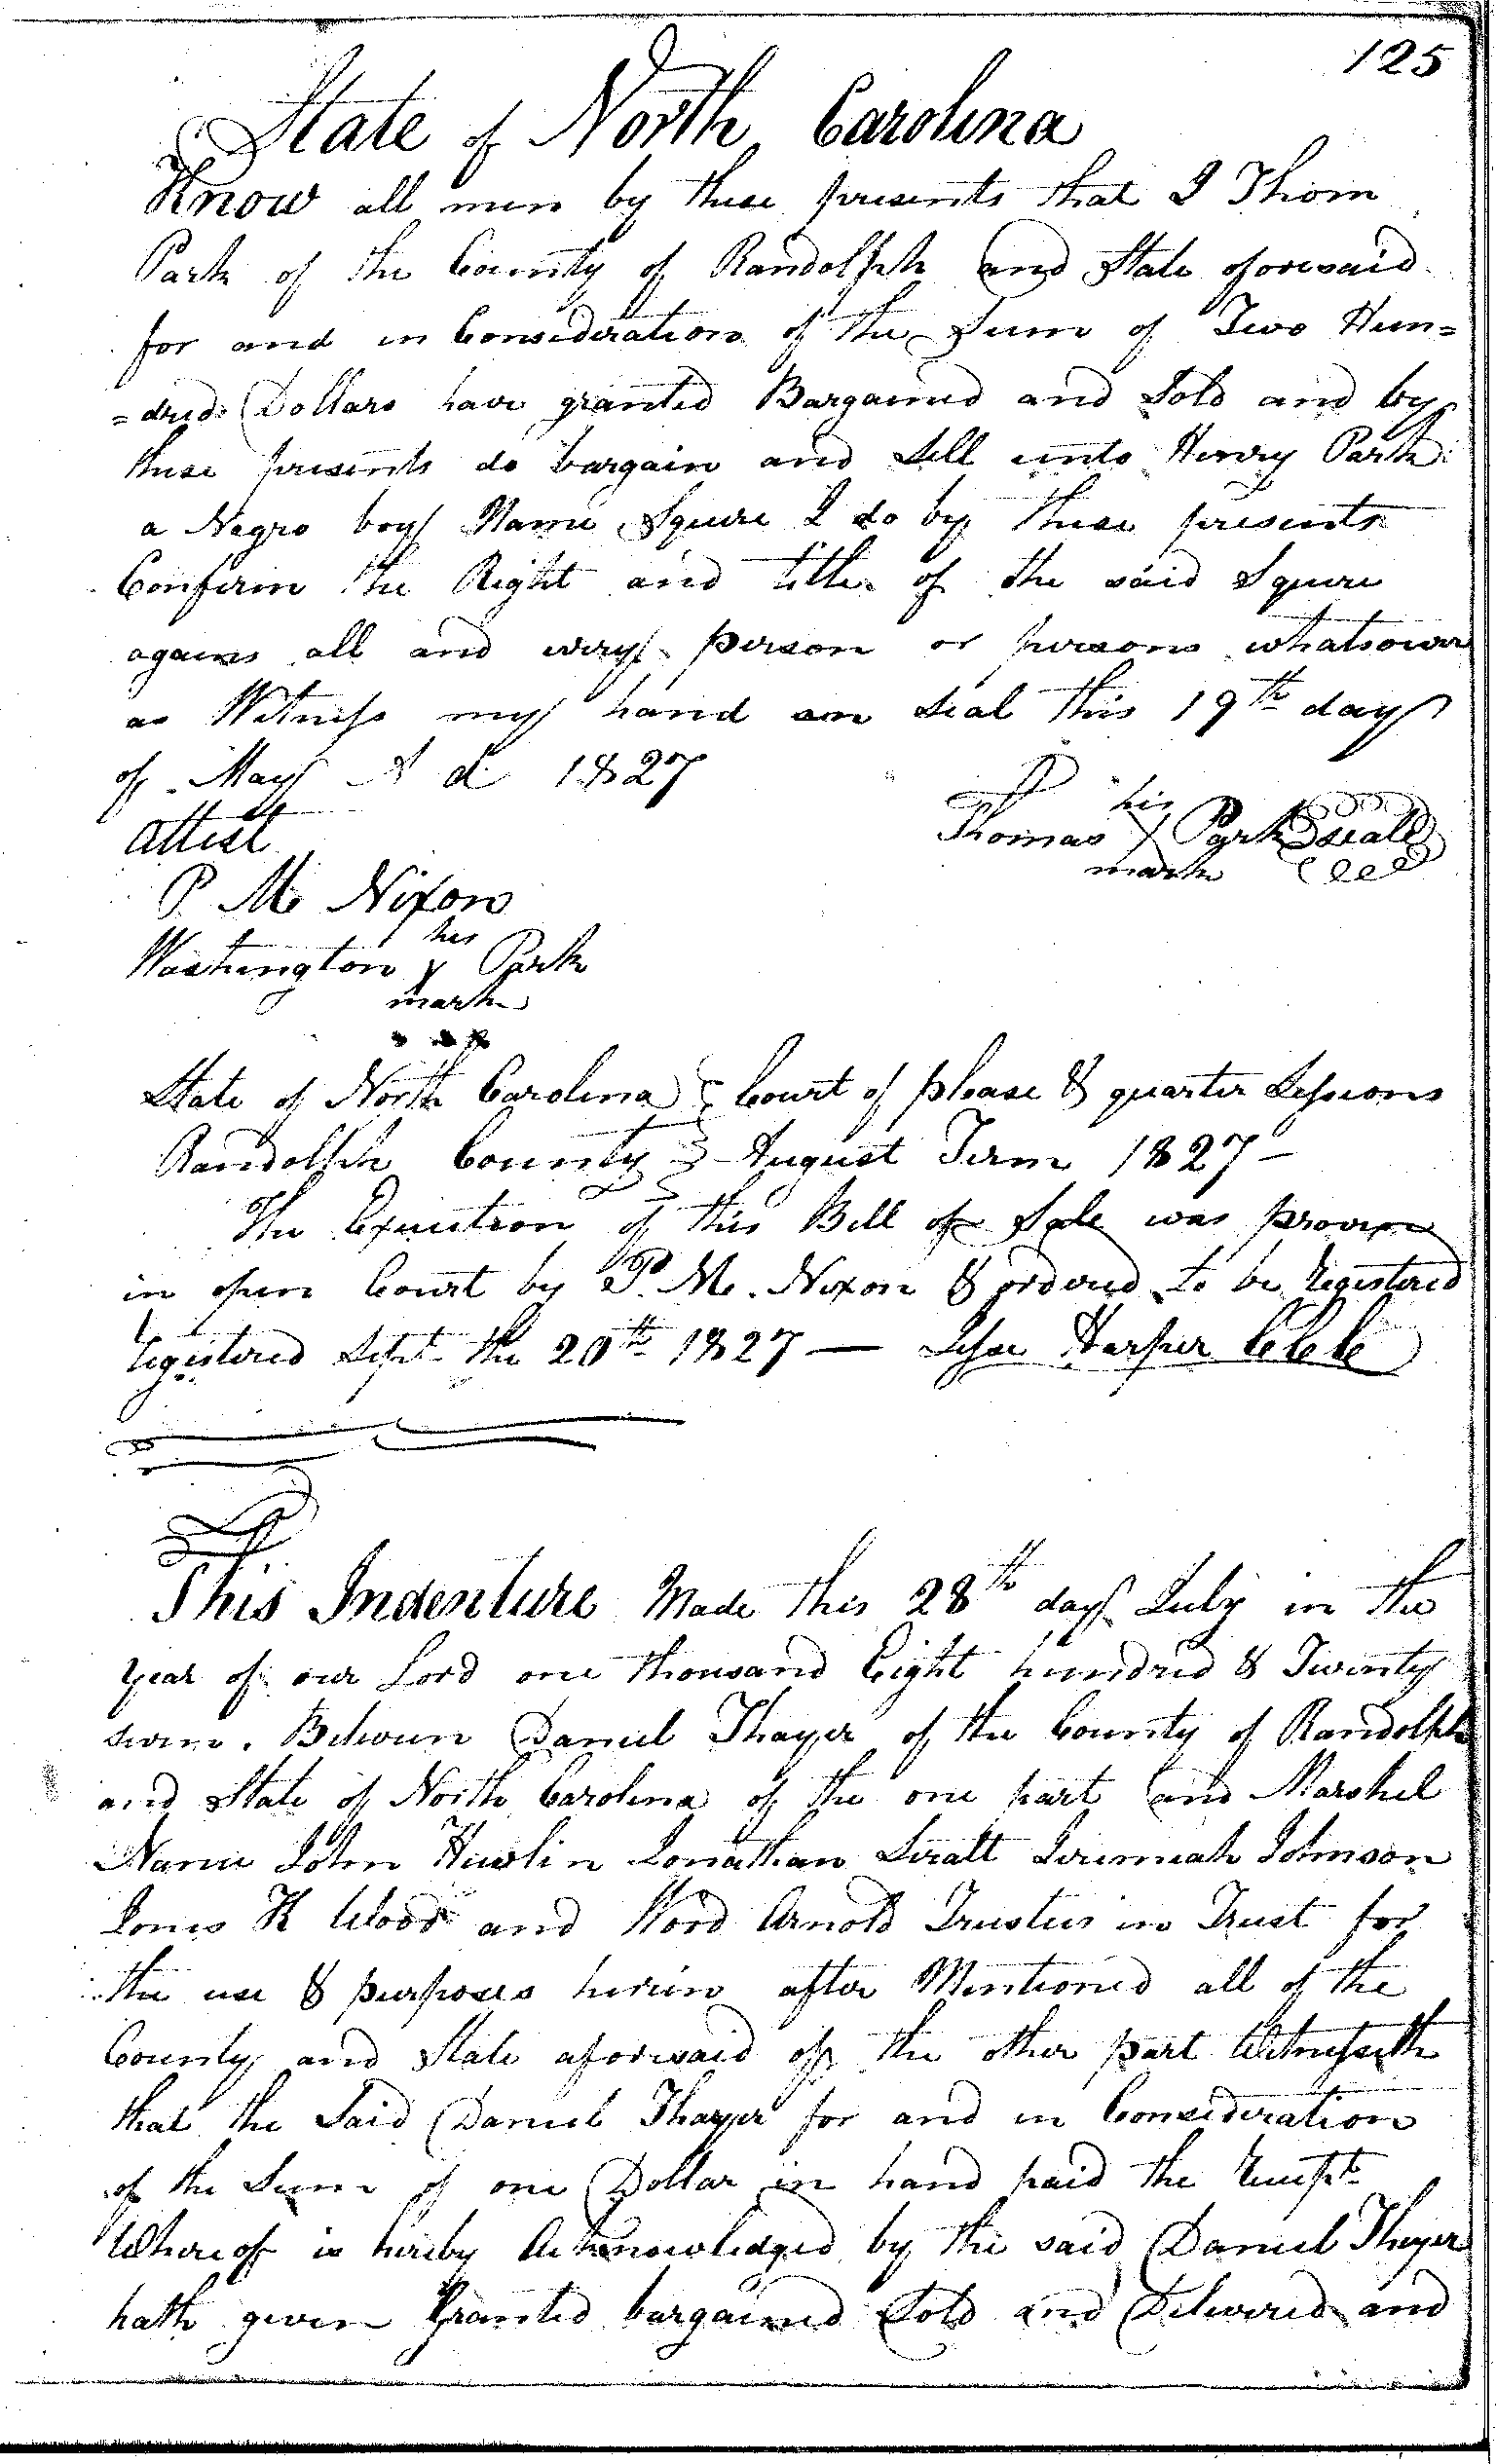 125
State of North Carolina
Know all men by these presents that I Thom
Park of the County of Randolph and State aforesaid
for and in Consideration of the Sum of Two Hun=
=dred Dollars have granted Bargained and Sold and by
these presents do bargain and Sell unto Henry Park
a Negro boy Name Squire I do by these presents
Confirm the Right and title of the said Squire
agains all and every person or persons whatsoever
as Witness my hand an Seal this 19th day
of May A d 1827
his
Thomas X Park seal
mark
attest
P. Mc Nixon
his
Washington X Park
mark
State of North Carolina Court of please & quarter Sessions
Randolph County August Term 1827 -
The Execution of this Bill of Sale was proven
in open Court by P. Mc. Nixon & ordered to be registered
registered Sept the 20th 1827 — Jesse Harper
This Indenture Made this 28th day July in the
year of our Lord one thousand Eight hundred & Twenty
seven. Between Daniel Thayer of the County of Randolph
and State of North Carolina of the one part and Marshel
Nance John Jonathan Jeremiah Johnson
Jones K Wood and Word Arnold Trustees in Trust for
the use & purposes herein after Mentioned all of the
County and State aforesaid of the other part Witnesseth
that the Said Daniel Thayer for and in Consideration
of the Sum of one Dollar in hand paid the Receipt
Whereof is hereby Acknowledged by the said Daniel Thayer
hath given Granted bargained Sold and Delivered and